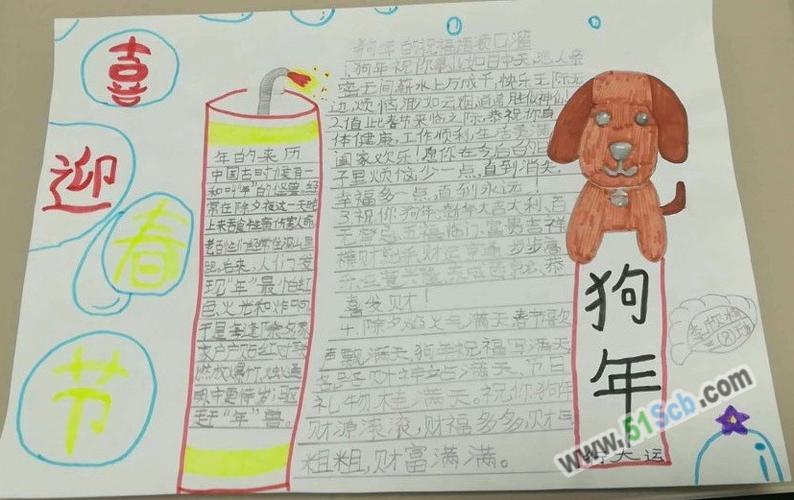 喜
迎
春
节
年的来历
中国古时候有一
种叫"年"的怪兽,经
常在除夕夜这一天晚
上来吞食牲畜伤害人命
后来,人们发
现"年"最怕红
色、火光和炸响
于是每逢除夕家
家户户贴红对联
燃放爆竹、烛通
明守更待岁,驱
赶"年"兽。
狗年的祝福语顺口溜
1.狗年祝你事业如日中天,恋人亲
密无间,薪水上万成千,快乐无际无
边,烦恼淡如云烟,逍遥胜似神仙!
2.值此春节来临之际,恭祝你身
体健康,工作顺利,生活美满
阖家欢乐!愿你在今后的日
子里烦恼少一点,直到消失,
幸福多一点,直到永远!
3.祝你狗年:新年大吉大利、百
无禁忌、五福临门、富贵吉祥
横财就手、财运亨通、步步高
恭
喜发财!
4.除夕焰火气满天,春节喜欢
声飘满天,狗年祝福写满天,
满天,节日
礼物堆满天。祝你狗年
财源滚滚,财福多多,财气
粗粗,财富满满。
狗
年
行大运
www.51Scb.com